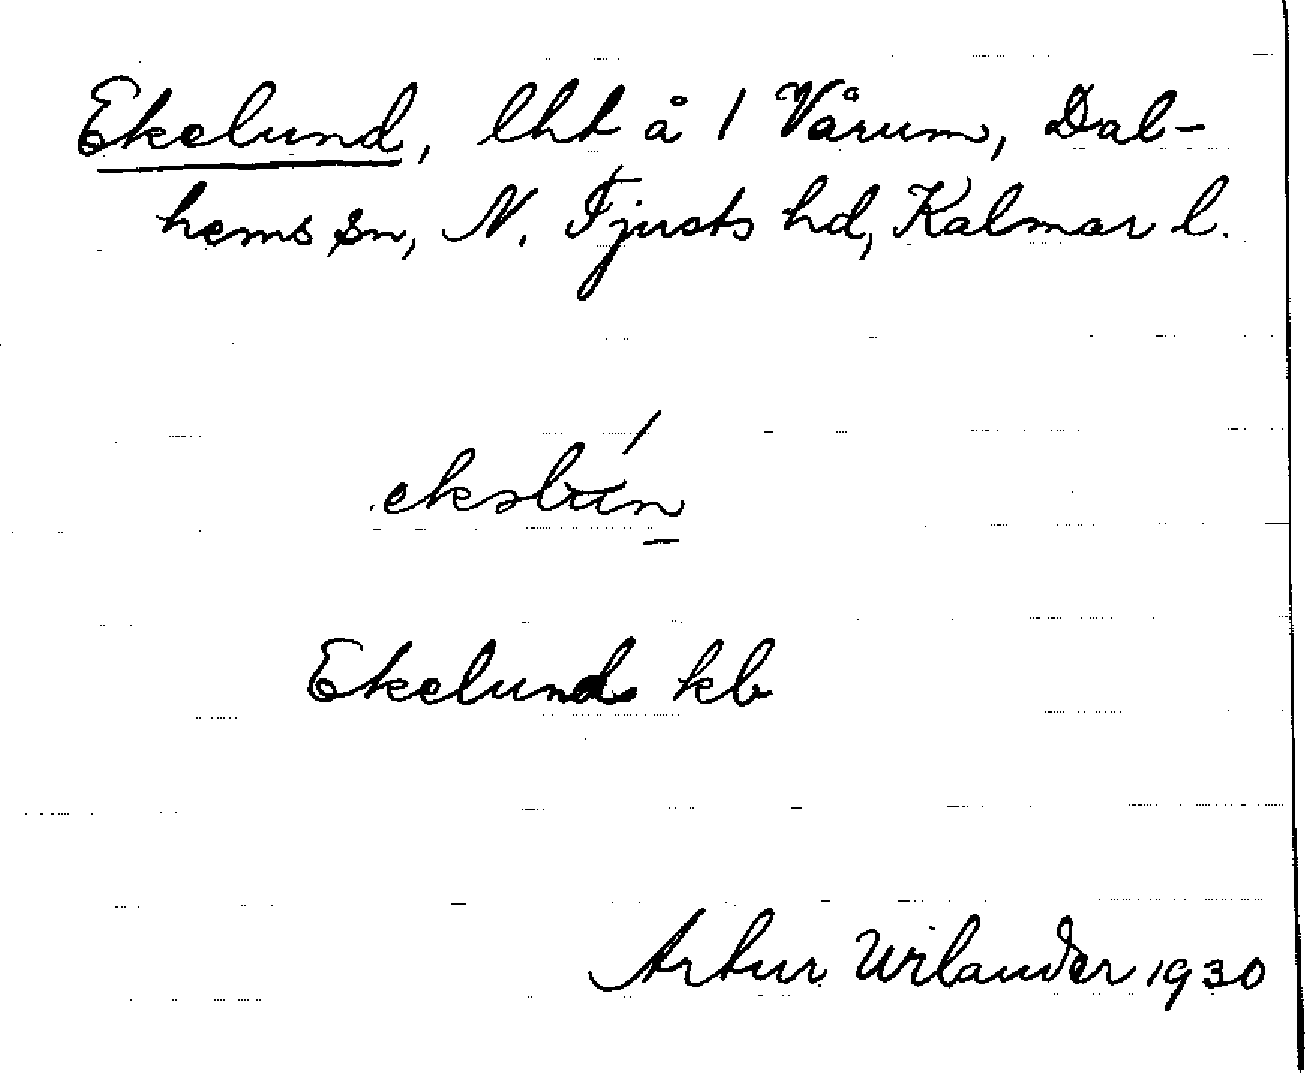 Ekelund, lht å 1 Vårum, Dal-
hems sn, N. Tjusts hd, Kalmar l.
Ekelund kb
Artur Wilander 1930